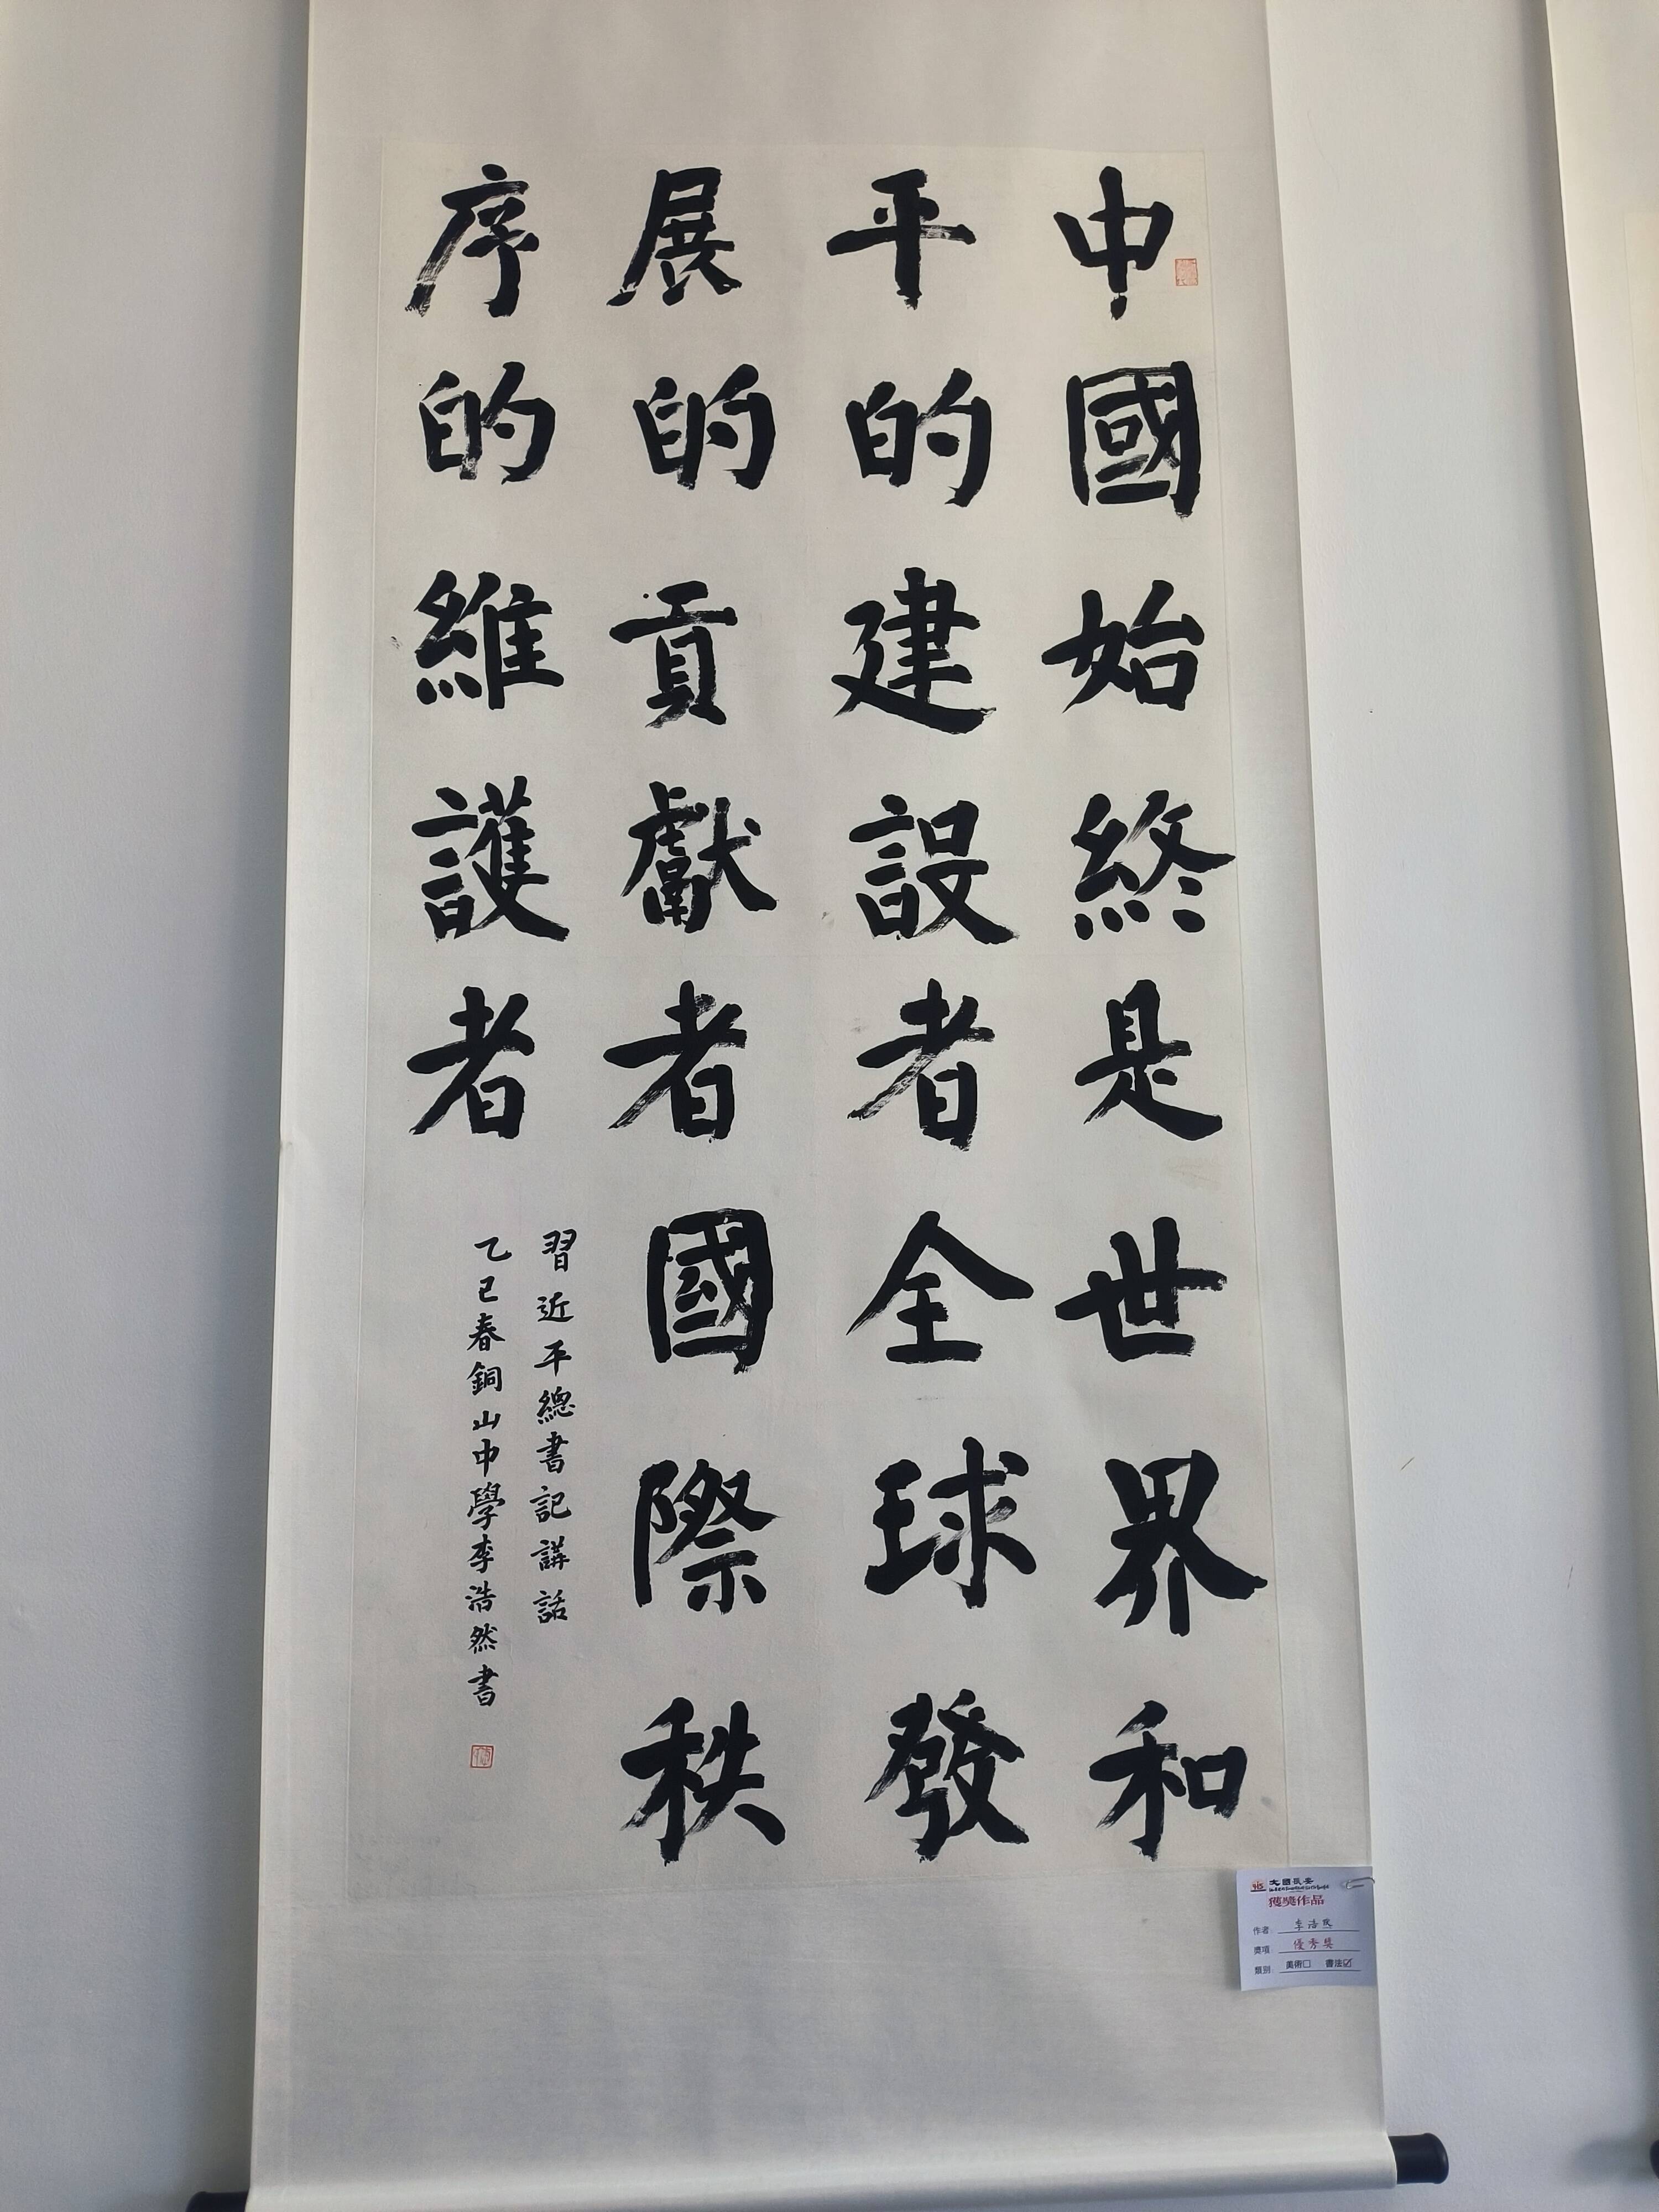 中國始終是世界和
平的建設者全球發
展的貢獻者國際秩
序的維護者
習近平總書記講話
乙巳春銅山中學李浩然書
獲獎作品
作者 李浩然
獎項 優秀獎
類别 美術□ 書法☑